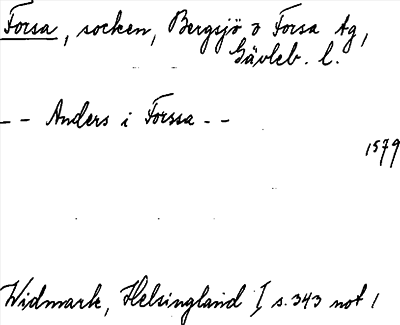 Forsa, socken, Bergsjö o Forsa tg,
Gävleb. l.
- - Anders i Forssa - -
1579
Widmark, Helsingland I s. 343 not 1